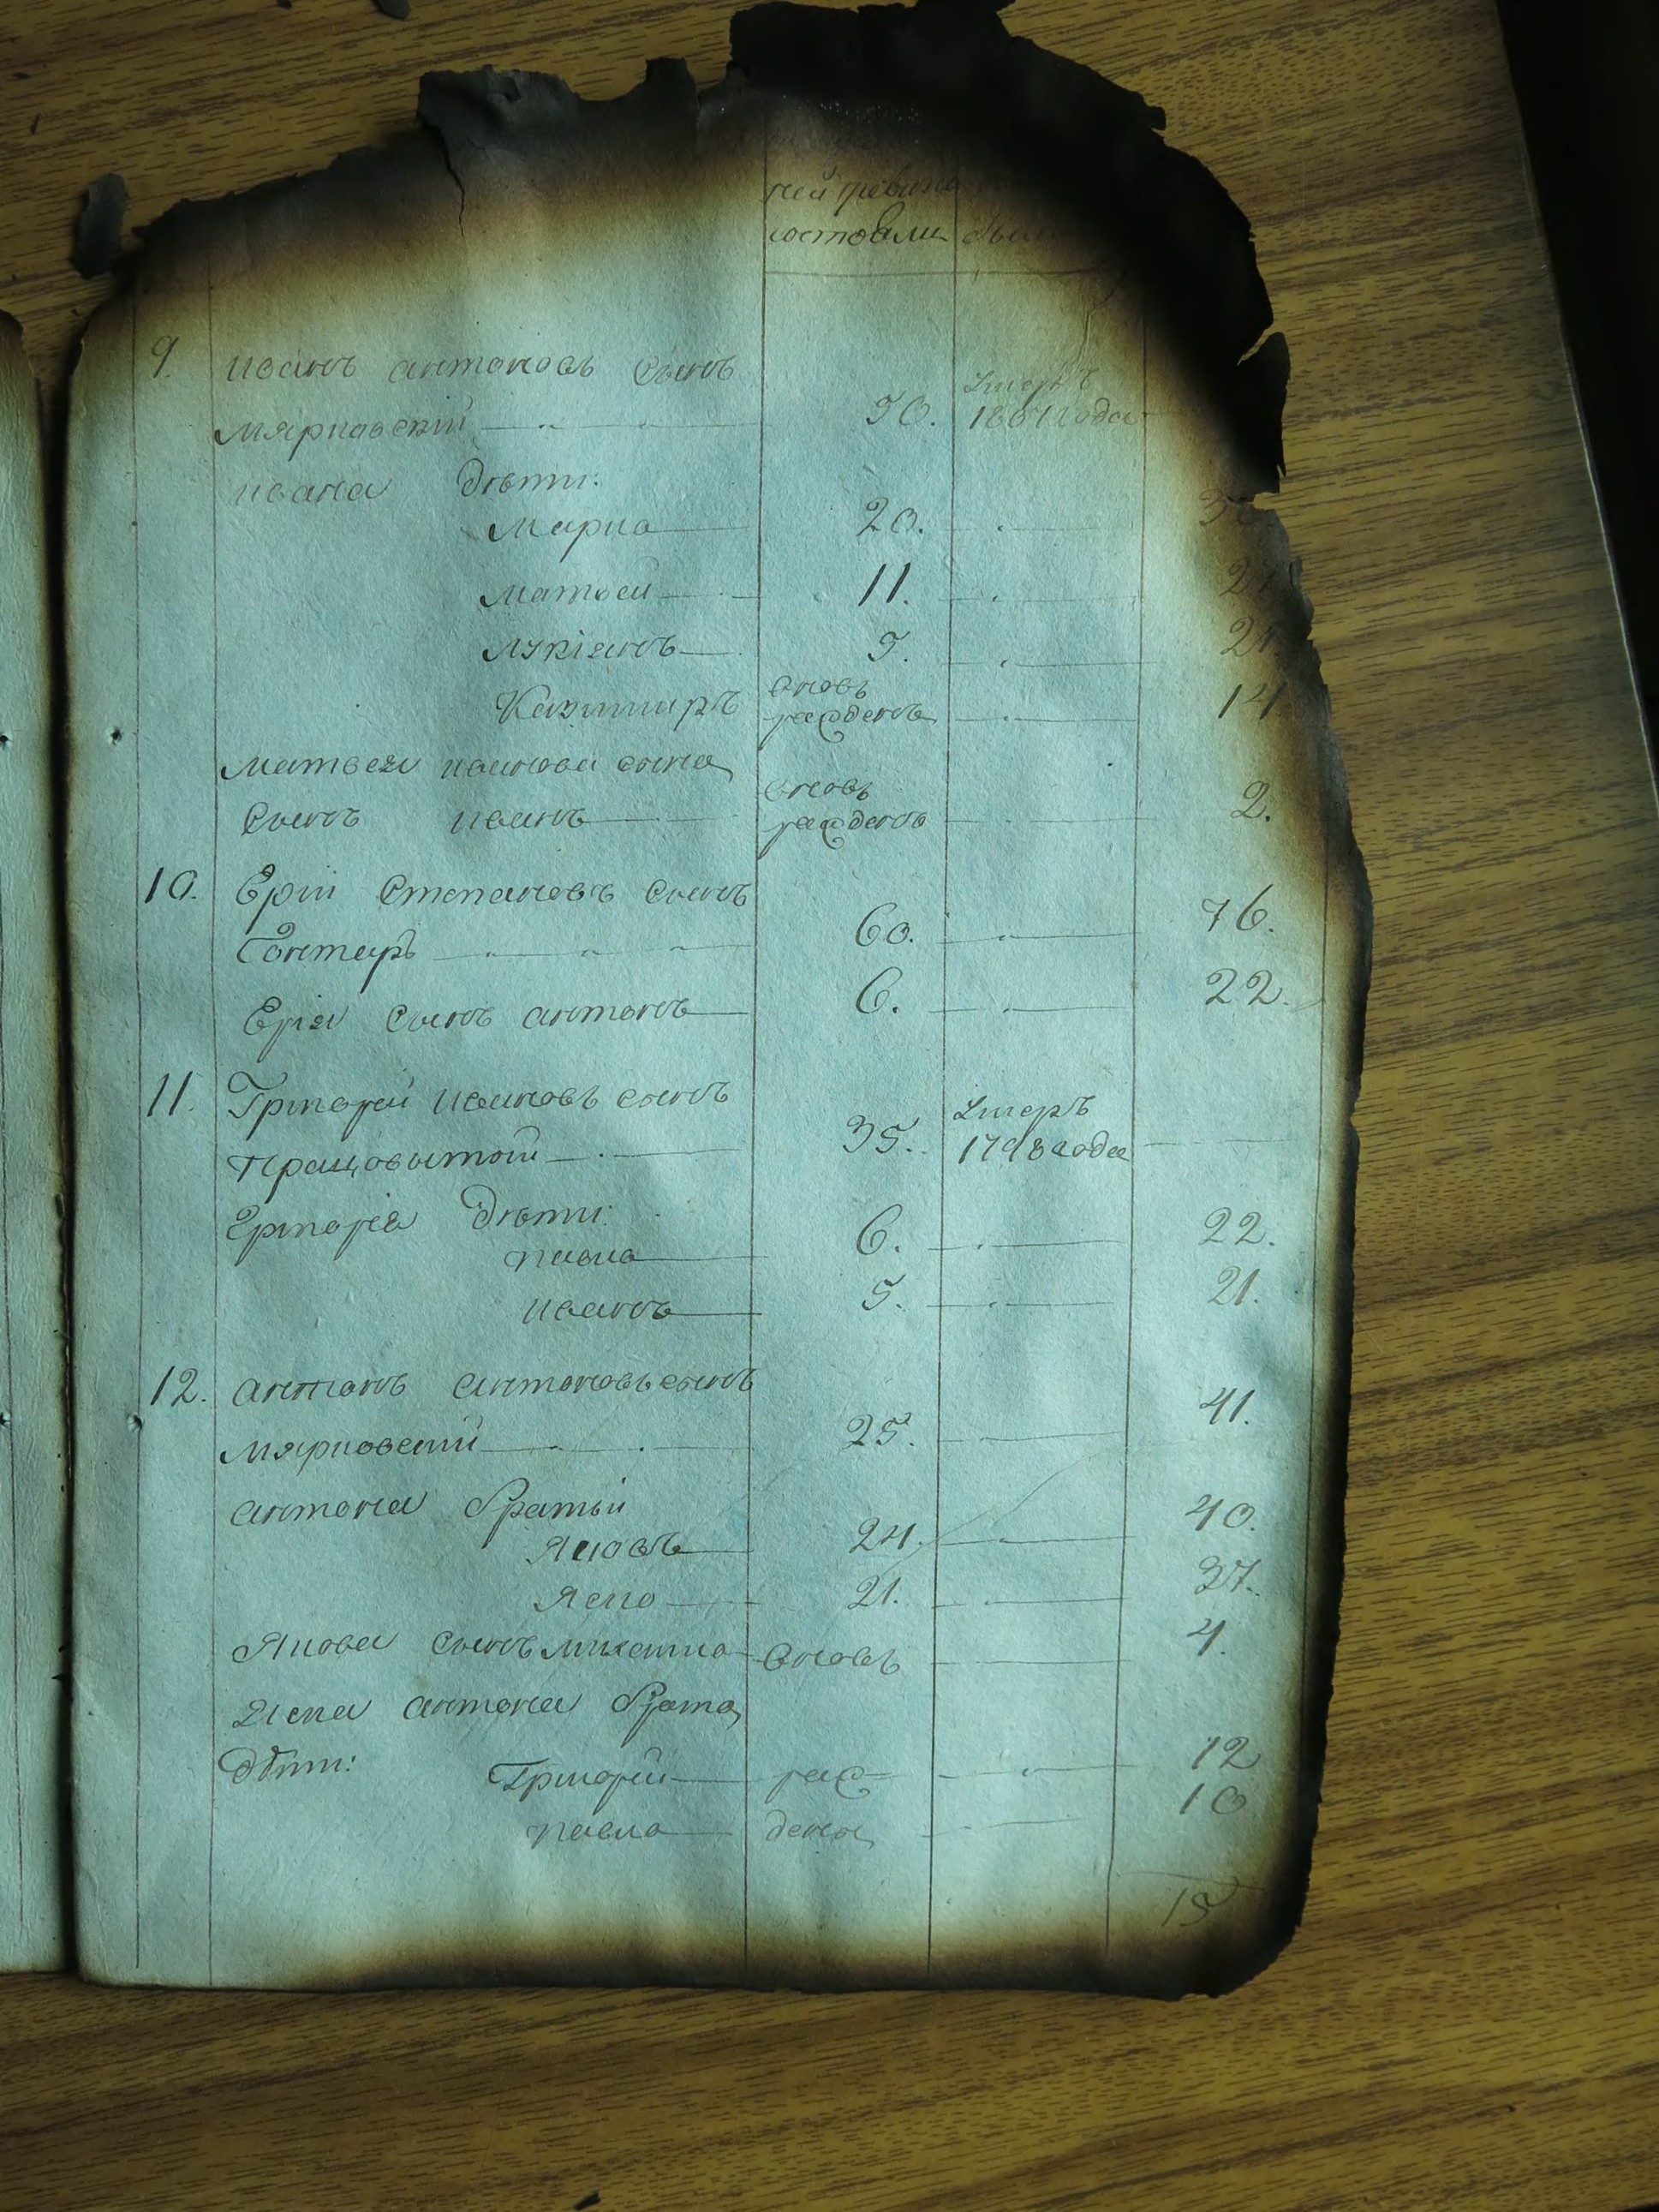 ней ревизiи
состояли были
9. Иванъ Антоновъ Сынъ
Умеръ
Мярковскiй 50. 1801 года
Ивана Дѣти:
Марко 20.
Матвей 11. 27
Лукiянъ 5. 21.
Казимиръ вновь
рожденъ 14.
Матвея Иванова сына
Сынъ Иванъ вновь
рожденъ 2.
10. Ерiй Степановъ Сынъ
Гонтарь 60. 76.
Ерiя Сынъ Антонъ 6. 22.
11. Григорей Ивановъ сынъ
Умеръ
35. 1798 года
Григорiя Дѣти:
Павло 6. 22.
Иванъ 5. 21.
12. Антонъ Антоновъ сынъ
Мярковскiй 25. 41.
Антона братьи
Яковъ 24. 40.
Яско 21. 37.
Якова Сынъ Михайло вновь 4.
Яска Антона брата
Дѣти: Григорей рож- 12
Павло дены 10
15